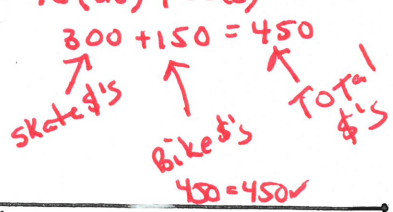 300 + 150 = 450
Skate $'s
Bike $'s
Total
$'s
450 = 450 ✓